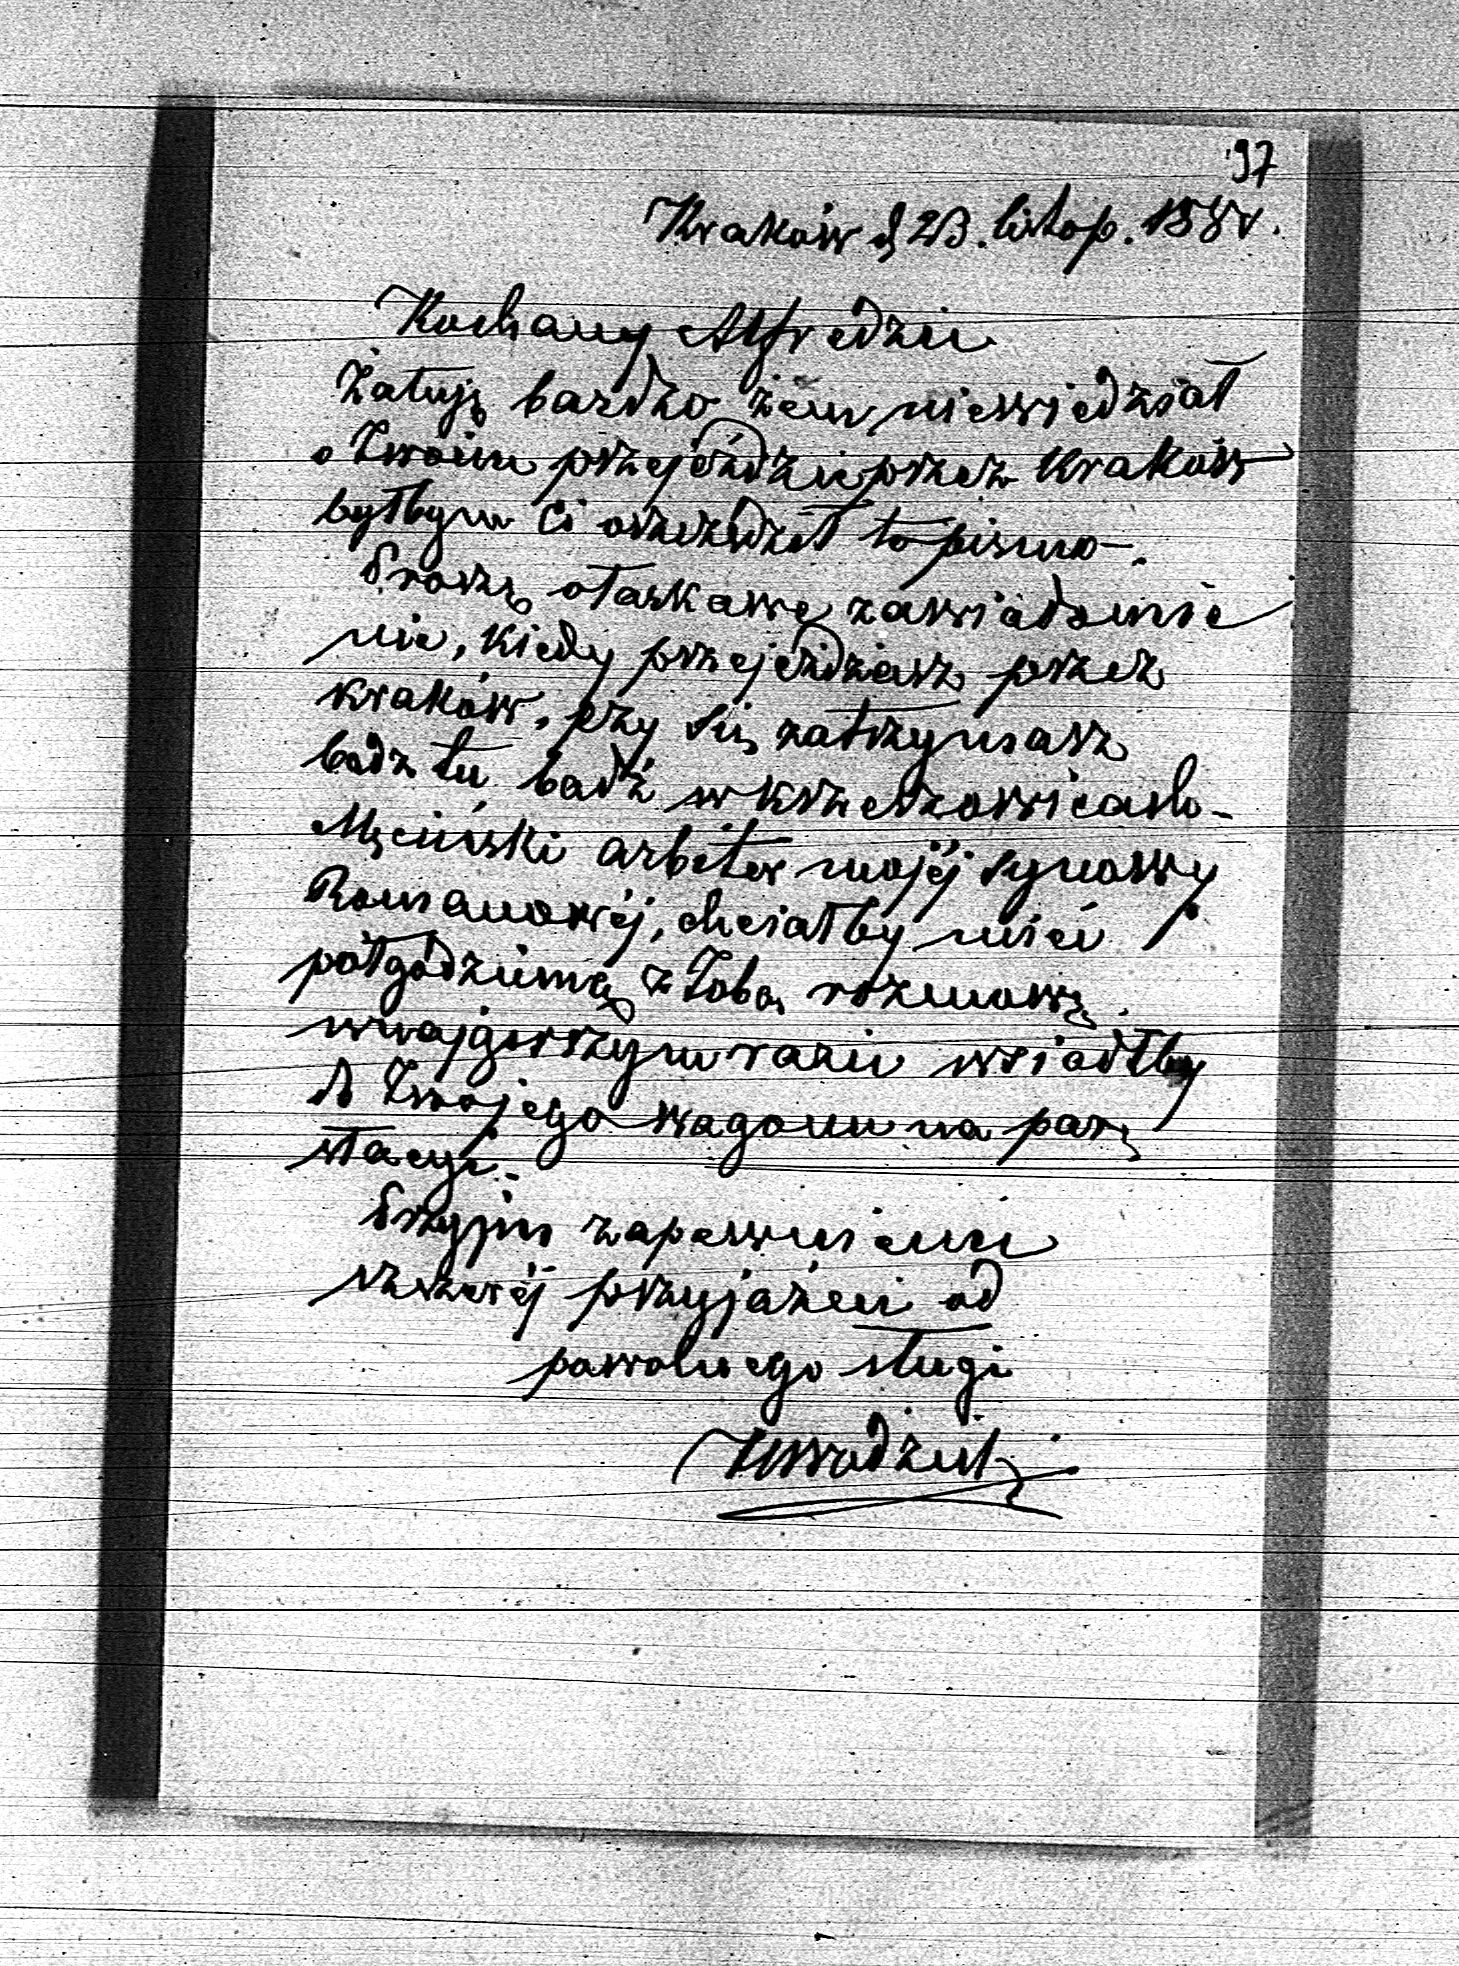 97
Kraków d 23. listop. 188
Kochany Alfredzie
Żałuję bardzo żem niewiedział
o Twoim przejeździe przez Kraków
byłbym Ci oszczędził to pismo.
Proszę o łaskawe zawiadomie
nie, kiedy przejeżdżasz przez
Kraków, czy się zatrzymasz
bądz tu bądź w Krzeszowicach.
Męciński arbiter mojéj synowy
Romanowéj, chciałby mieć
półgodzinną z Tobą rozmowę
w najgorszym razie wsiadłby
do Twojego wagonu na parę
stacyi.
Przyjm zapewnienie
szczeréj przyjaźni od
powolnego sługi